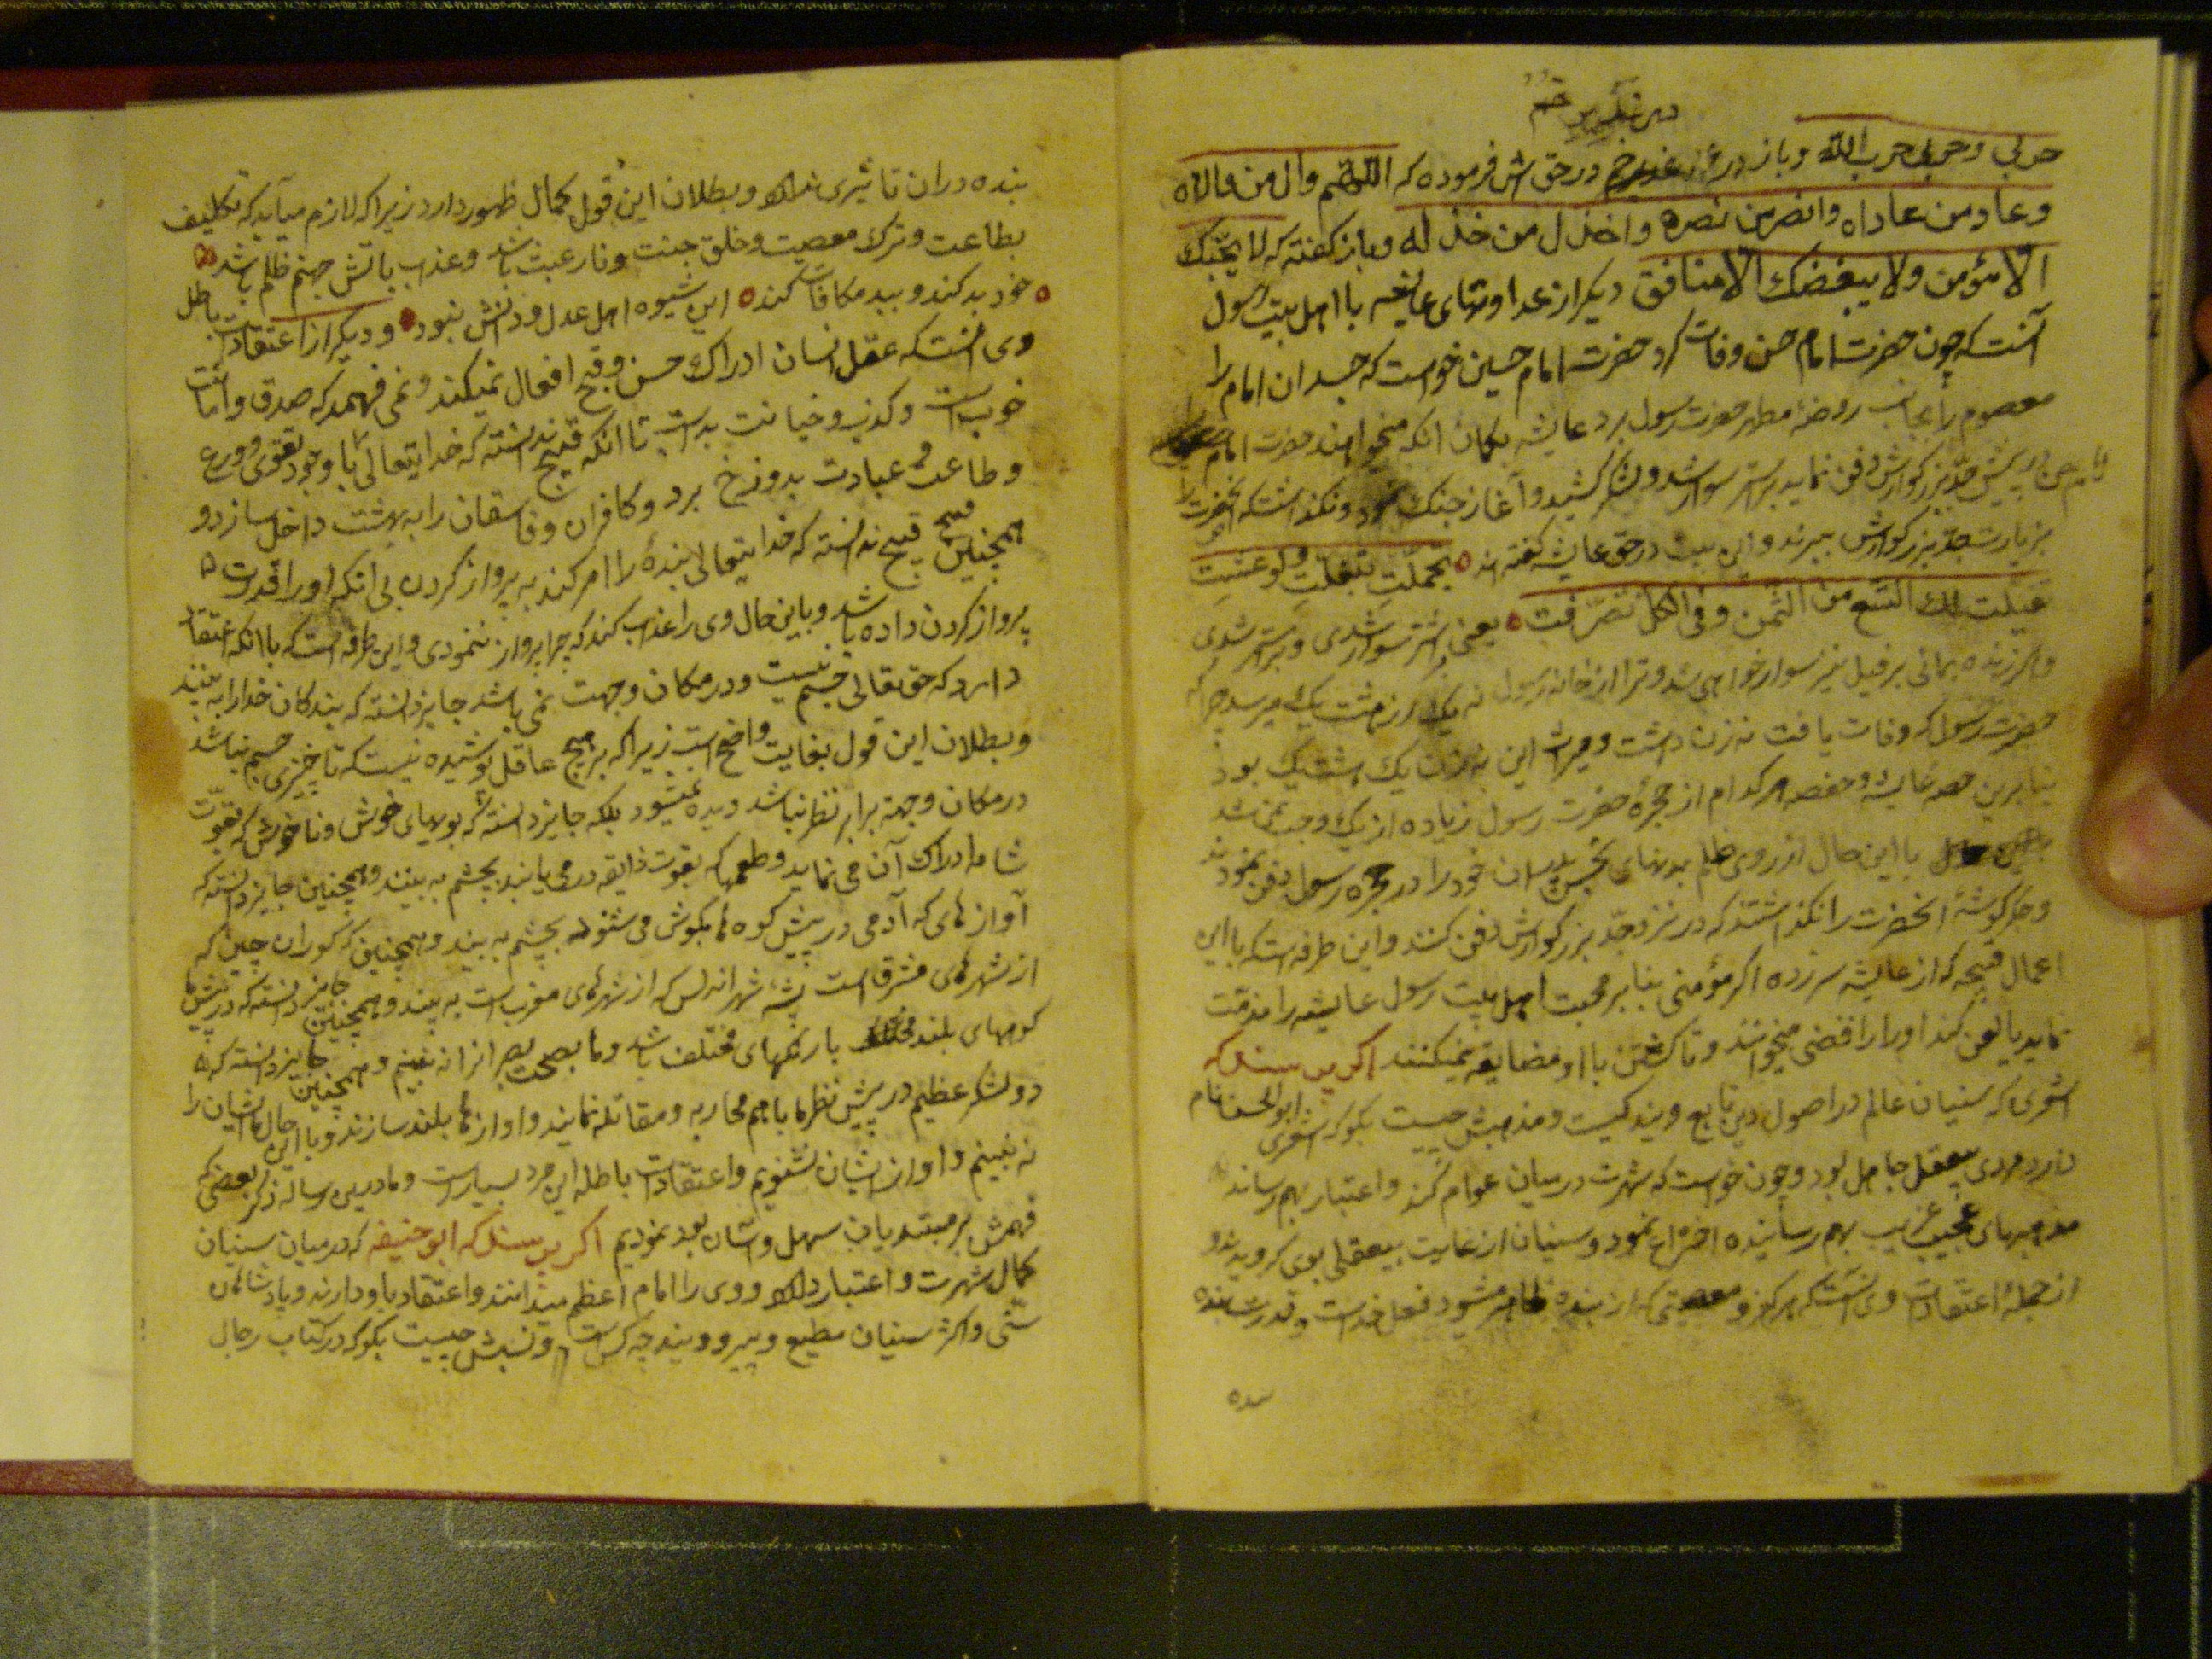 حربی و حربی حرب الله و باز در غدیر خم در حقش فرموده که اللهم وال من والاه
وعاد من عاداه وانصر من نصره واخذل من خذله وباز گفته که لا یحبک
الا مؤمن ولا یبغضک الا منافق دیگر از عداوتهای عایشه با اهل بیت رسول
آنست که چون حضرت امام حسن وفات کرد حضرت امام حسین خواست که جسد ان امام
معصوم را بجانب روضهٔ مطهر حضرت رسول برد عایشه بکمان انکه میخواهند حضرت امام
در پیش جد بزرگوارش دفن نماید بر استر سوار شد و لشکر کشید و آغاز جنک نمود و نکذاشت که انحضرت را
بزیارت جد بزرگوارش ببرند و این بیت در حق عایشه گفته اند تجملت تبغلت ولو عشت
تفیلت لک التسع من الثمن وفی الکل تصرفت یعنی بر شتر سوار شدی و بر استر شدی
و اگر زنده بمانی بر فیل نیز سوار خواهی شد و ترا از خانه رسول نه یک از هشت یک میرسد چرا که
حضرت رسول که وفات یافت نه زن داشت و میراث این نه زن یک هشت یک بود
بنابرین حصه عایشه و حفصه هر کدام از حجرهٔ حضرت رسول زیاده از یک وجب نمی شد
با این حال از روی ظلم بدنهای نجس پدران خود را در حجره رسول دفن نمودند
و جگر گوشهٔ انحضرت را نکذاشتند که در نزد جد بزرگوارش دفن کنند و این طرفه است که با این
اعمال قبیحه که از عایشه سر زده اگر مؤمنی بنا بر محبت اهل بیت رسول عایشه را مذمت
نماید یا لعن کند او را رافضی میخوانند و تا کشتن با او مضایقه نمیکنند اگر پرسند که
اشعری که سنیان عالم در اصول دین تابع ویند کیست و مذهبش چیست بگو که اشعری ابو الحسن نام
دارد مردی بیعقل جاهل بود و چون خواست که شهرت در میان عوام کند و اعتبار بهم رساند
مذهبهای عجیب غریب بهم رسانیده اختراع نمود و سنیان از غایت بیعقلی بوی گرویدند
از جملهٔ اعتقادات وی آنست که هر کفر و معصیتی که از بنده ظاهر میشود فعل خداست و قدرت بنده
بنده در ان تاثیری ندارد و بطلان این قول کمال ظهور دارد زیرا که لازم میآید که تکلیف
بطاعت و ترک معصیت و خلق جنت و نار عبث باشد و عذاب باتش جهنم ظلم باشد
خود بد کند و ببد مکافات کند این شیوه اهل عدل و دانش نبود و دیگر از اعتقادات باطل
وی آنست که عقل انسان ادراک حسن و قبح افعال نمیکند و نمی فهمد که صدق و امانت
خوب است و کذب و خیانت بد است تا انکه قبیح ندانسته که خدایتعالی با وجود تقوی و ورع
و طاعت و عبادت بدوزخ برد و کافران و فاسقان را به بهشت داخل سازد و
همچنین قبیح ندانسته که خدایتعالی بندهٔ را امر کند به پرواز کردن بی انکه او را قدرت
پرواز کردن داده باشد و باین حال وی را عذاب کند که چرا پرواز ننمودی و این طرفه است که با انکه اعتقاد
دارد که حق تعالی جسم نیست و در مکان و جهت نمی باشد جایز دانسته که بندکان خدا را به بینند
و بطلان این قول بغایت واضح است زیرا که بر هیچ عاقل پوشیده نیست که تا چیزی جسم نباشد
در مکان و جهة برابر نظر نباشد دیده نمیشود بلکه جایز دانسته که بویهای خوش و ناخوش که بقوت
شامه ادراک آن می نماید و طعمها که بقوت ذایقه در می یابند بچشم به بینند و همچنین جایز دانسته که
آوازهای که آدمی در پیش کوه ها بگوش می شنود بچشم به بیند و همچنین که کوران چین که
از شهرهای مشرق است پشه شهر اندلس که از شهرهای مغرب است به بیند و همچنین جایز دانسته که در پیش ما
کوههای بلند با رنکهای مختلف باشد و ما بصحت بصر انرا نه بینیم و همچنین جایز دانسته که
دو لشکر عظیم در پیش نظر ما باهم محاربه و مقاتله نمایند و اوازها بلند سازند و با این حال ما ایشان را
نه بینیم و اواز ایشان نشنویم و اعتقادات باطله این مرد بسیار است و ما درین رساله ذکر بعضی که
فهمش بر مبتدیان سهل و آسان بود نمودیم اگر پرسند که ابو حنیفه که در میان سنیان
کمال شهرت و اعتبار دارد و وی را امام اعظم میدانند و اعتقاد باو دارند و پادشاهان
سنی و اکثر سنیان مطیع و پیرو ویند چه کس است و نسبش چیست بگو که در کتاب رجال